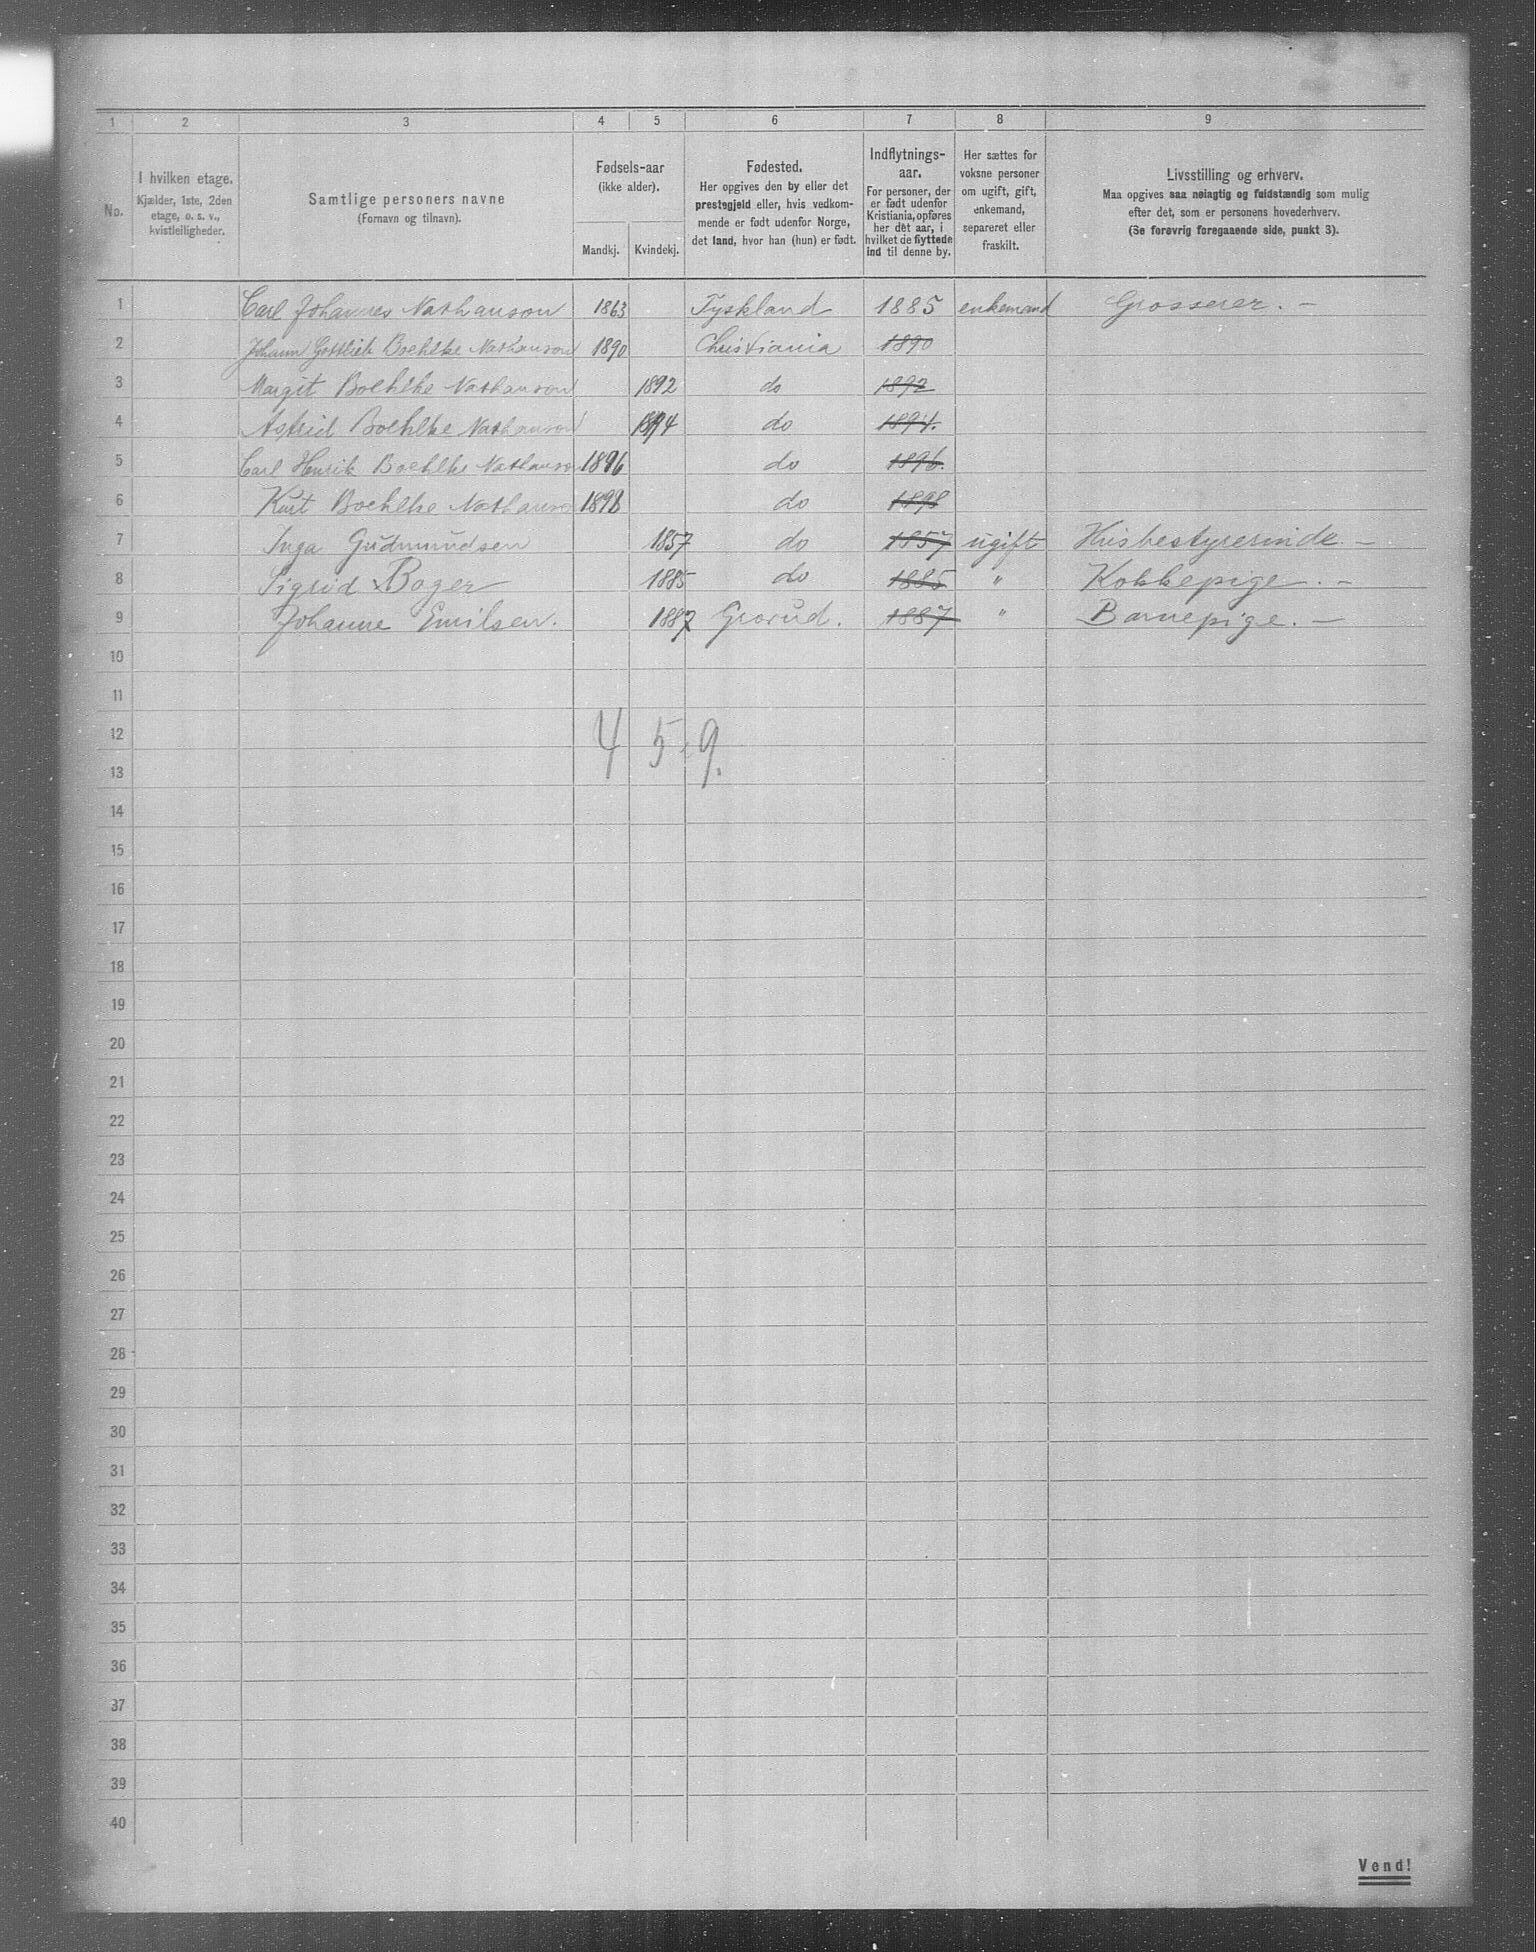 1 2 3 4 5 6 7 8 9
No.
I hvilken etage.
Kjælder, 1ste, 2den
etage, o. s. v.,
kvistleiligheder.
Samtlige personers navne
(Fornavn og tilnavn).
Fødsels-aar
(ikke alder).
Mandkj. Kvindekj.
Fødested.
Her opgives den by eller det
prestegjeld eller, hvis vedkom-
mende er født udenfor Norge,
det land, hvor han (hun) er født.
Indflytnings-
aar.
For personer, der
er født udenfor
Kristiania, opføres
her det aar, i
hvilket de flyttede
ind til denne by.
Her sættes for
voksne personer
om ugift, gift,
enkemand,
separeret eller
fraskilt.
Livsstilling og erhverv.
Maa opgives saa nøiagtig og fuldstændig som mulig
efter det, som er personens hovederhverv.
(Se forøvrig foregaaende side, punkt 3).
1 Carl Johannes Nathanson 1863 Tyskland 1885 enkemand Grosserer. —
2 Johann Gottlieb Boehlke Nathanson 1890 Christiania 1890
3 Margit Boehlke Nathanson 1892 do 1892
4 Astrid Boehlke Nathanson 1894 do 1894.
5 Carl Henrik Boehlke Nathanson 1896 do 1896.
6 Kurt Boehlke Nathanson 1898 do 1898
7 Inga Gudmundsen 1857 do 1857 ugift Husbestyrerinde. —
8 Sigrid Boger 1885 do 1885 " Kokkepige. —
9 Johanne Emilsen. 1887 Grorud. 1887 " Barnepige. —
10
11
12 4 5 9.
13
14
15
16
17
18
19
20
21
22
23
24
25
26
27
28
29
30
31
32
33
34
35
36
37
38
39
40
Vend!